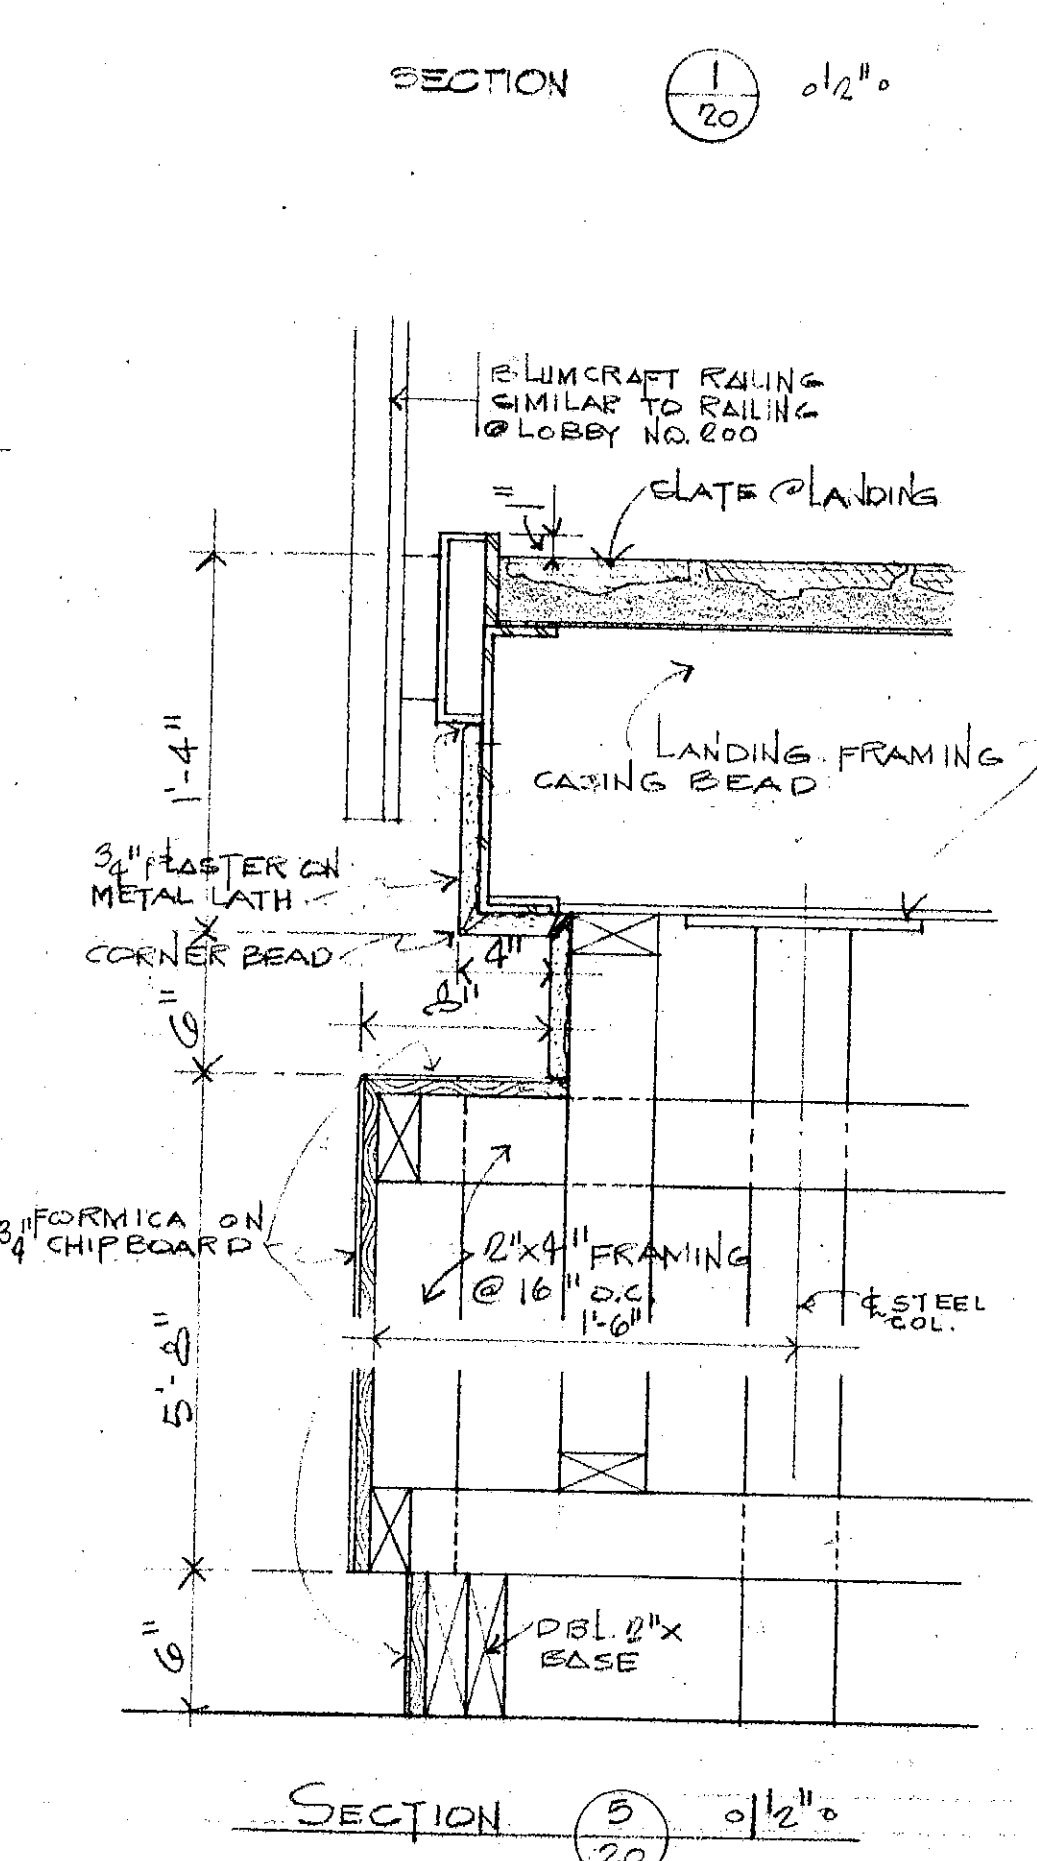 SECTION 1/20 o1/2"o
BLUMCRAFT RAILING
SIMILAR TO RAILING
@ LOBBY NO. 200
=
SLATE @ LANDING
1'-4"
LANDING FRAMING
CASING BEAD
3/4" PLASTER ON
METAL LATH
CORNER BEAD
4"
8"
6"
FORMICA ON
3/4" CHIPBOARD
2"x4" FRAMING
@ 16" O.C.
1'-6"
℄ STEEL
COL.
5'-8"
6"
DBL. 2"x
BASE
SECTION 5/20 o1 1/2"o